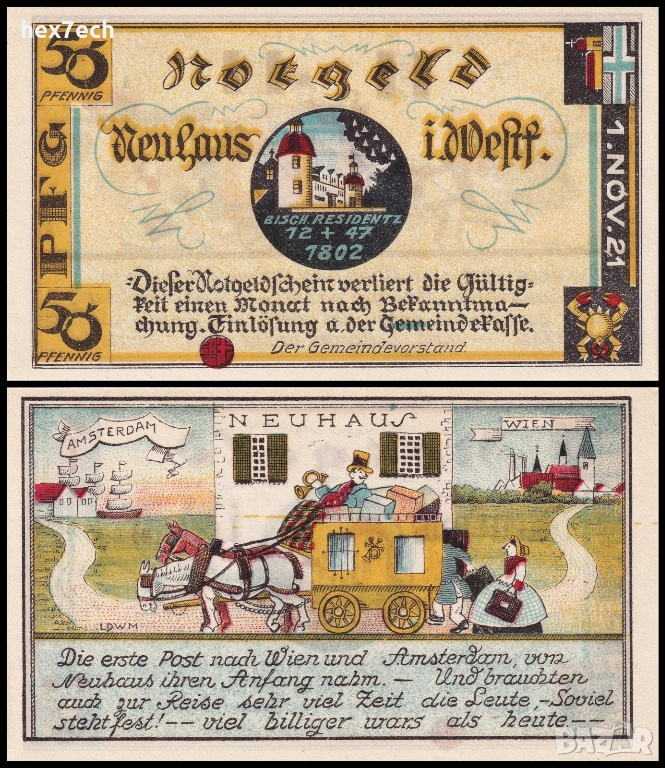 hex7ech
50
PFENNIG
Notgeld
Neuhaus i. Westf.
PFG
1. NOV. 21
BISCH. RESIDENTZ
12 + 47
1802
Dieser Notgeldschein verliert die Gültig-
keit einen Monat nach Bekanntma-
chung. Einlösung a. der Gemeindekasse.
Der Gemeindevorstand.
50
PFENNIG
NEUHAUS
AMSTERDAM
WIEN
LDWM
Die erste Post nach Wien und Amsterdam, von
Neuhaus ihren Anfang nahm. — Und brauchten
auch zur Reise sehr viel Zeit die Leute, - Soviel
steht fest! -- viel billiger wars als heute --
BAZAR